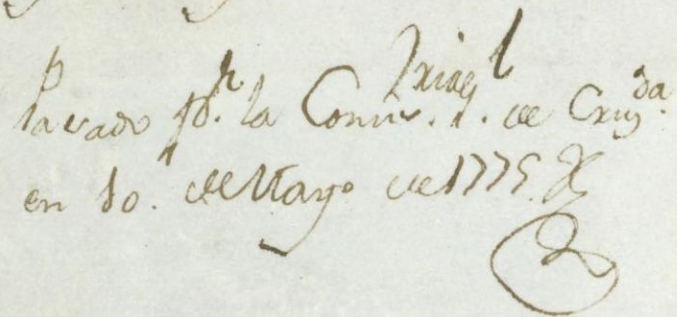 Pasado p.r la de Cruz.da
en 10. de Mayo de 1775